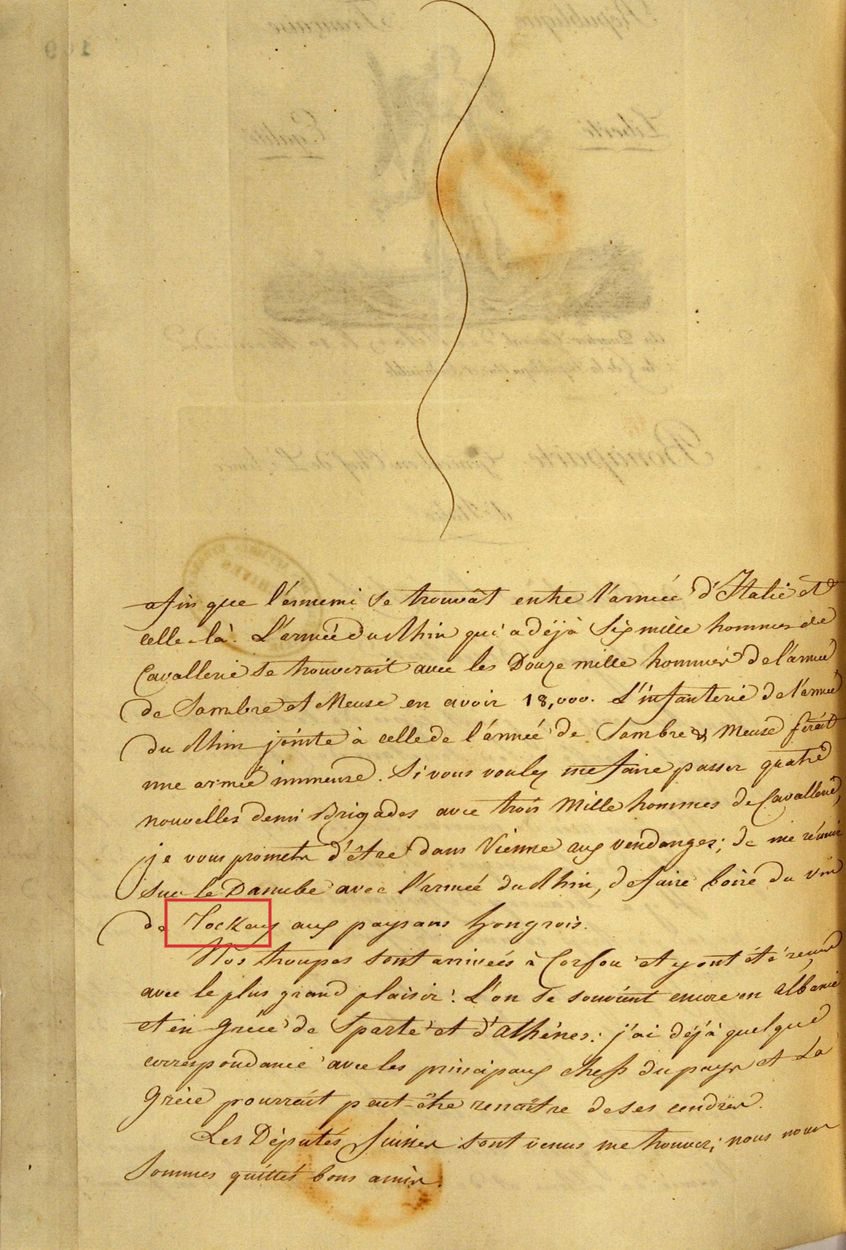 afin que l'ennemi se trouvât entre l'armée d'Italie et
celle-là. L'armée du Rhin qui a déjà Six mille hommes de
Cavallerie se trouverait avec les Douze mille hommes de l'armée
de Sambre et Meuse en avoir 18,000. L'infanterie de l'armée
du Rhin jointe à celle de l'armée de Sambre & Meuse ferait
une armée immense. Si vous voulez me faire passer quatre
nouvelles demi Brigades avec trois Mille hommes de Cavallerie,
je vous promets d'être dans Vienne aux vendanges; de me réunir
sur le Danube avec l'armée du Rhin, de faire boire du vin
de Tockay aux paysans hongrois.
Nos troupes sont arrivées à Corfou et y ont été reçues
avec le plus grand plaisir. L'on se souvient encore en albanie
et en Grèce de Sparte et d'athènes: j'ai déjà quelque
correspondance avec les principaux chefs du pays et La
Grèce pourrait peut-être renaître de ses cendres.
Les Députés Suisses sont venus me trouver; nous nous
sommes quittés bons amis.